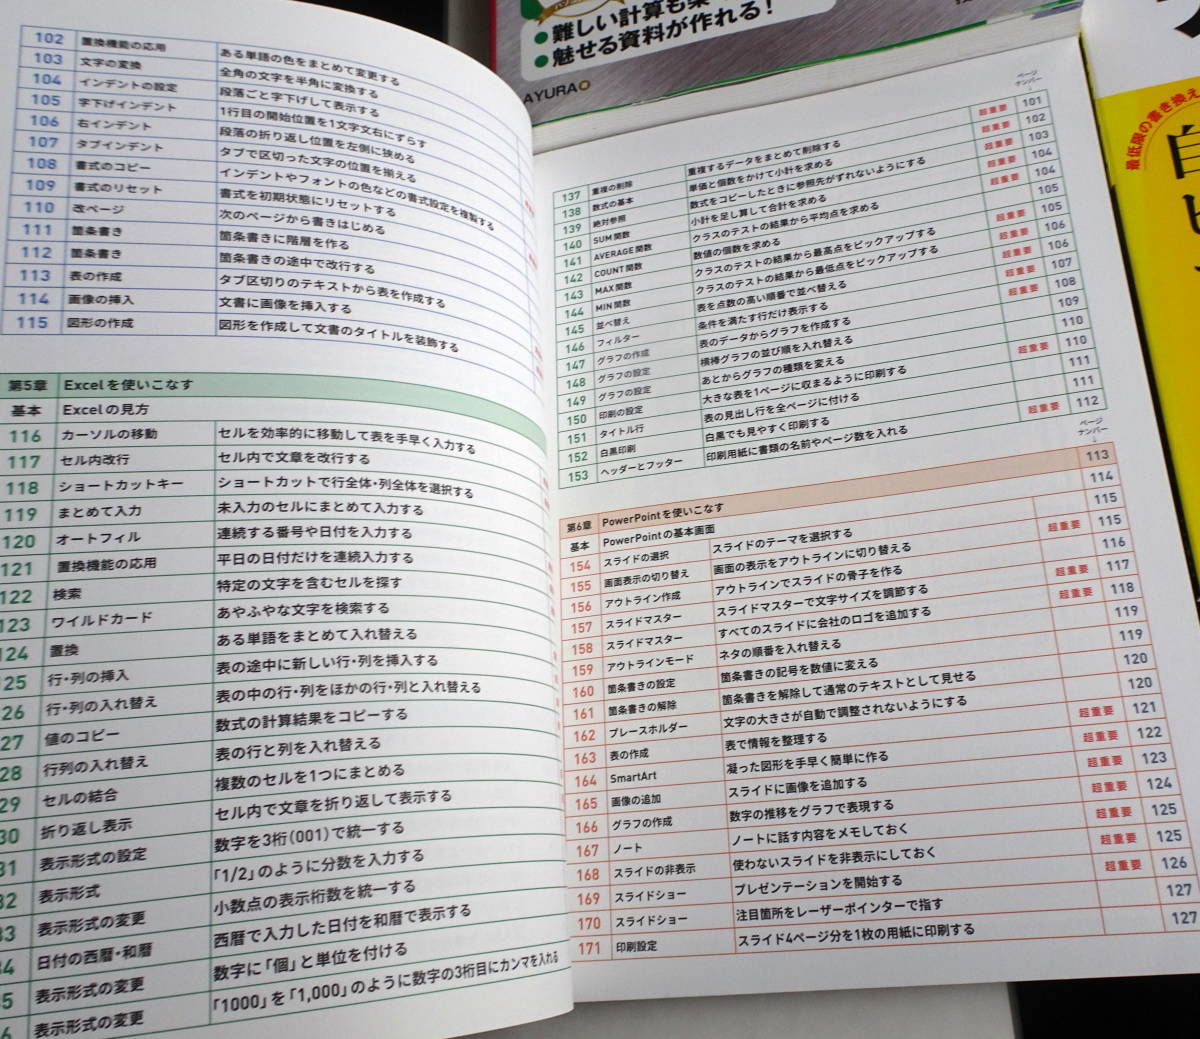 難しい計算も楽
魅せる資料が作れる!
AYURA
最低限の書き換え
102 置換機能の応用 ある単語の色をまとめて変更する
103 文字の変換 全角の文字を半角に変換する
104 インデントの設定 段落ごと字下げして表示する
105 字下げインデント 1行目の開始位置を1文字文右にずらす
106 右インデント 段落の折り返し位置を左側に狭める
107 タブインデント タブで区切った文字の位置を揃える
108 書式のコピー インデントやフォントの色などの書式設定を複製する
109 書式のリセット 書式を初期状態にリセットする
110 改ページ 次のページから書きはじめる
111 箇条書き 箇条書きに階層を作る
112 箇条書き 箇条書きの途中で改行する
113 表の作成 タブ区切りのテキストから表を作成する
114 画像の挿入 文書に画像を挿入する
115 図形の作成 図形を作成して文書のタイトルを装飾する
第5章 Excelを使いこなす
基本 Excelの見方
116 カーソルの移動 セルを効率的に移動して表を手早く入力する
117 セル内改行 セル内で文章を改行する
118 ショートカットキー ショートカットで行全体・列全体を選択する
119 まとめて入力 未入力のセルにまとめて入力する
120 オートフィル 連続する番号や日付を入力する
121 置換機能の応用 平日の日付だけを連続入力する
122 検索 特定の文字を含むセルを探す
123 ワイルドカード あやふやな文字を検索する
124 置換 ある単語をまとめて入れ替える
25 行・列の挿入 表の途中に新しい行・列を挿入する
26 行・列の入れ替え 表の中の行・列をほかの行・列と入れ替える
27 値のコピー 数式の計算結果をコピーする
28 行列の入れ替え 表の行と列を入れ替える
29 セルの結合 複数のセルを1つにまとめる
30 折り返し表示 セル内で文章を折り返して表示する
31 表示形式の設定 数字を3桁(001)で統一する
32 表示形式 「1/2」のように分数を入力する
33 表示形式の変更 小数点の表示桁数を統一する
34 日付の西暦・和暦 西暦で入力した日付を和暦で表示する
5 表示形式の変更 数字に「個」と単位を付ける
6 表示形式の変更 「1000」を「1,000」のように数字の3桁目にカンマを入れる
ページナンバー
↓
137 重複の削除 重複するデータをまとめて削除する 超重要 101
138 数式の基本 単価と個数をかけて小計を求める 超重要 102
139 絶対参照 数式をコピーしたときに参照先がずれないようにする 超重要 103
140 SUM関数 小計を足し算して合計を求める 超重要 104
141 AVERAGE関数 クラスのテストの結果から平均点を求める 超重要 104
142 COUNT関数 数値の個数を求める 105
143 MAX関数 クラスのテストの結果から最高点をピックアップする 超重要 105
144 MIN関数 クラスのテストの結果から最低点をピックアップする 超重要 106
145 並べ替え 表を点数の高い順番で並べ替える 超重要 106
146 フィルター 条件を満たす行だけ表示する 超重要 107
147 グラフの作成 表のデータからグラフを作成する 超重要 108
148 グラフの設定 横棒グラフの並び順を入れ替える 109
149 グラフの設定 あとからグラフの種類を変える 110
150 印刷の設定 大きな表を1ページに収まるように印刷する 超重要 110
151 タイトル行 表の見出し行を全ページに付ける 111
152 白黒印刷 白黒でも見やすく印刷する 111
153 ヘッダーとフッター 印刷用紙に書類の名前やページ数を入れる 超重要 112
ページナンバー
↓
第6章 PowerPointを使いこなす 113
基本 PowerPointの基本画面 114
154 スライドの選択 スライドのテーマを選択する 115
155 画面表示の切り替え 画面の表示をアウトラインに切り替える 超重要 115
156 アウトライン作成 アウトラインでスライドの骨子を作る 116
157 スライドマスター スライドマスターで文字サイズを調節する 超重要 117
158 スライドマスター すべてのスライドに会社のロゴを追加する 超重要 118
159 アウトラインモード ネタの順番を入れ替える 119
160 箇条書きの設定 箇条書きの記号を数値に変える 119
161 箇条書きの解除 箇条書きを解除して通常のテキストとして見せる 120
162 プレースホルダー 文字の大きさが自動で調整されないようにする 120
163 表の作成 表で情報を整理する 超重要 121
164 SmartArt 凝った図形を手早く簡単に作る 超重要 122
165 画像の追加 スライドに画像を追加する 超重要 123
166 グラフの作成 数字の推移をグラフで表現する 超重要 124
167 ノート ノートに話す内容をメモしておく 超重要 125
168 スライドの非表示 使わないスライドを非表示にしておく 超重要 125
169 スライドショー プレゼンテーションを開始する 超重要 126
170 スライドショー 注目箇所をレーザーポインターで指す 127
171 印刷設定 スライド4ページ分を1枚の用紙に印刷する 127